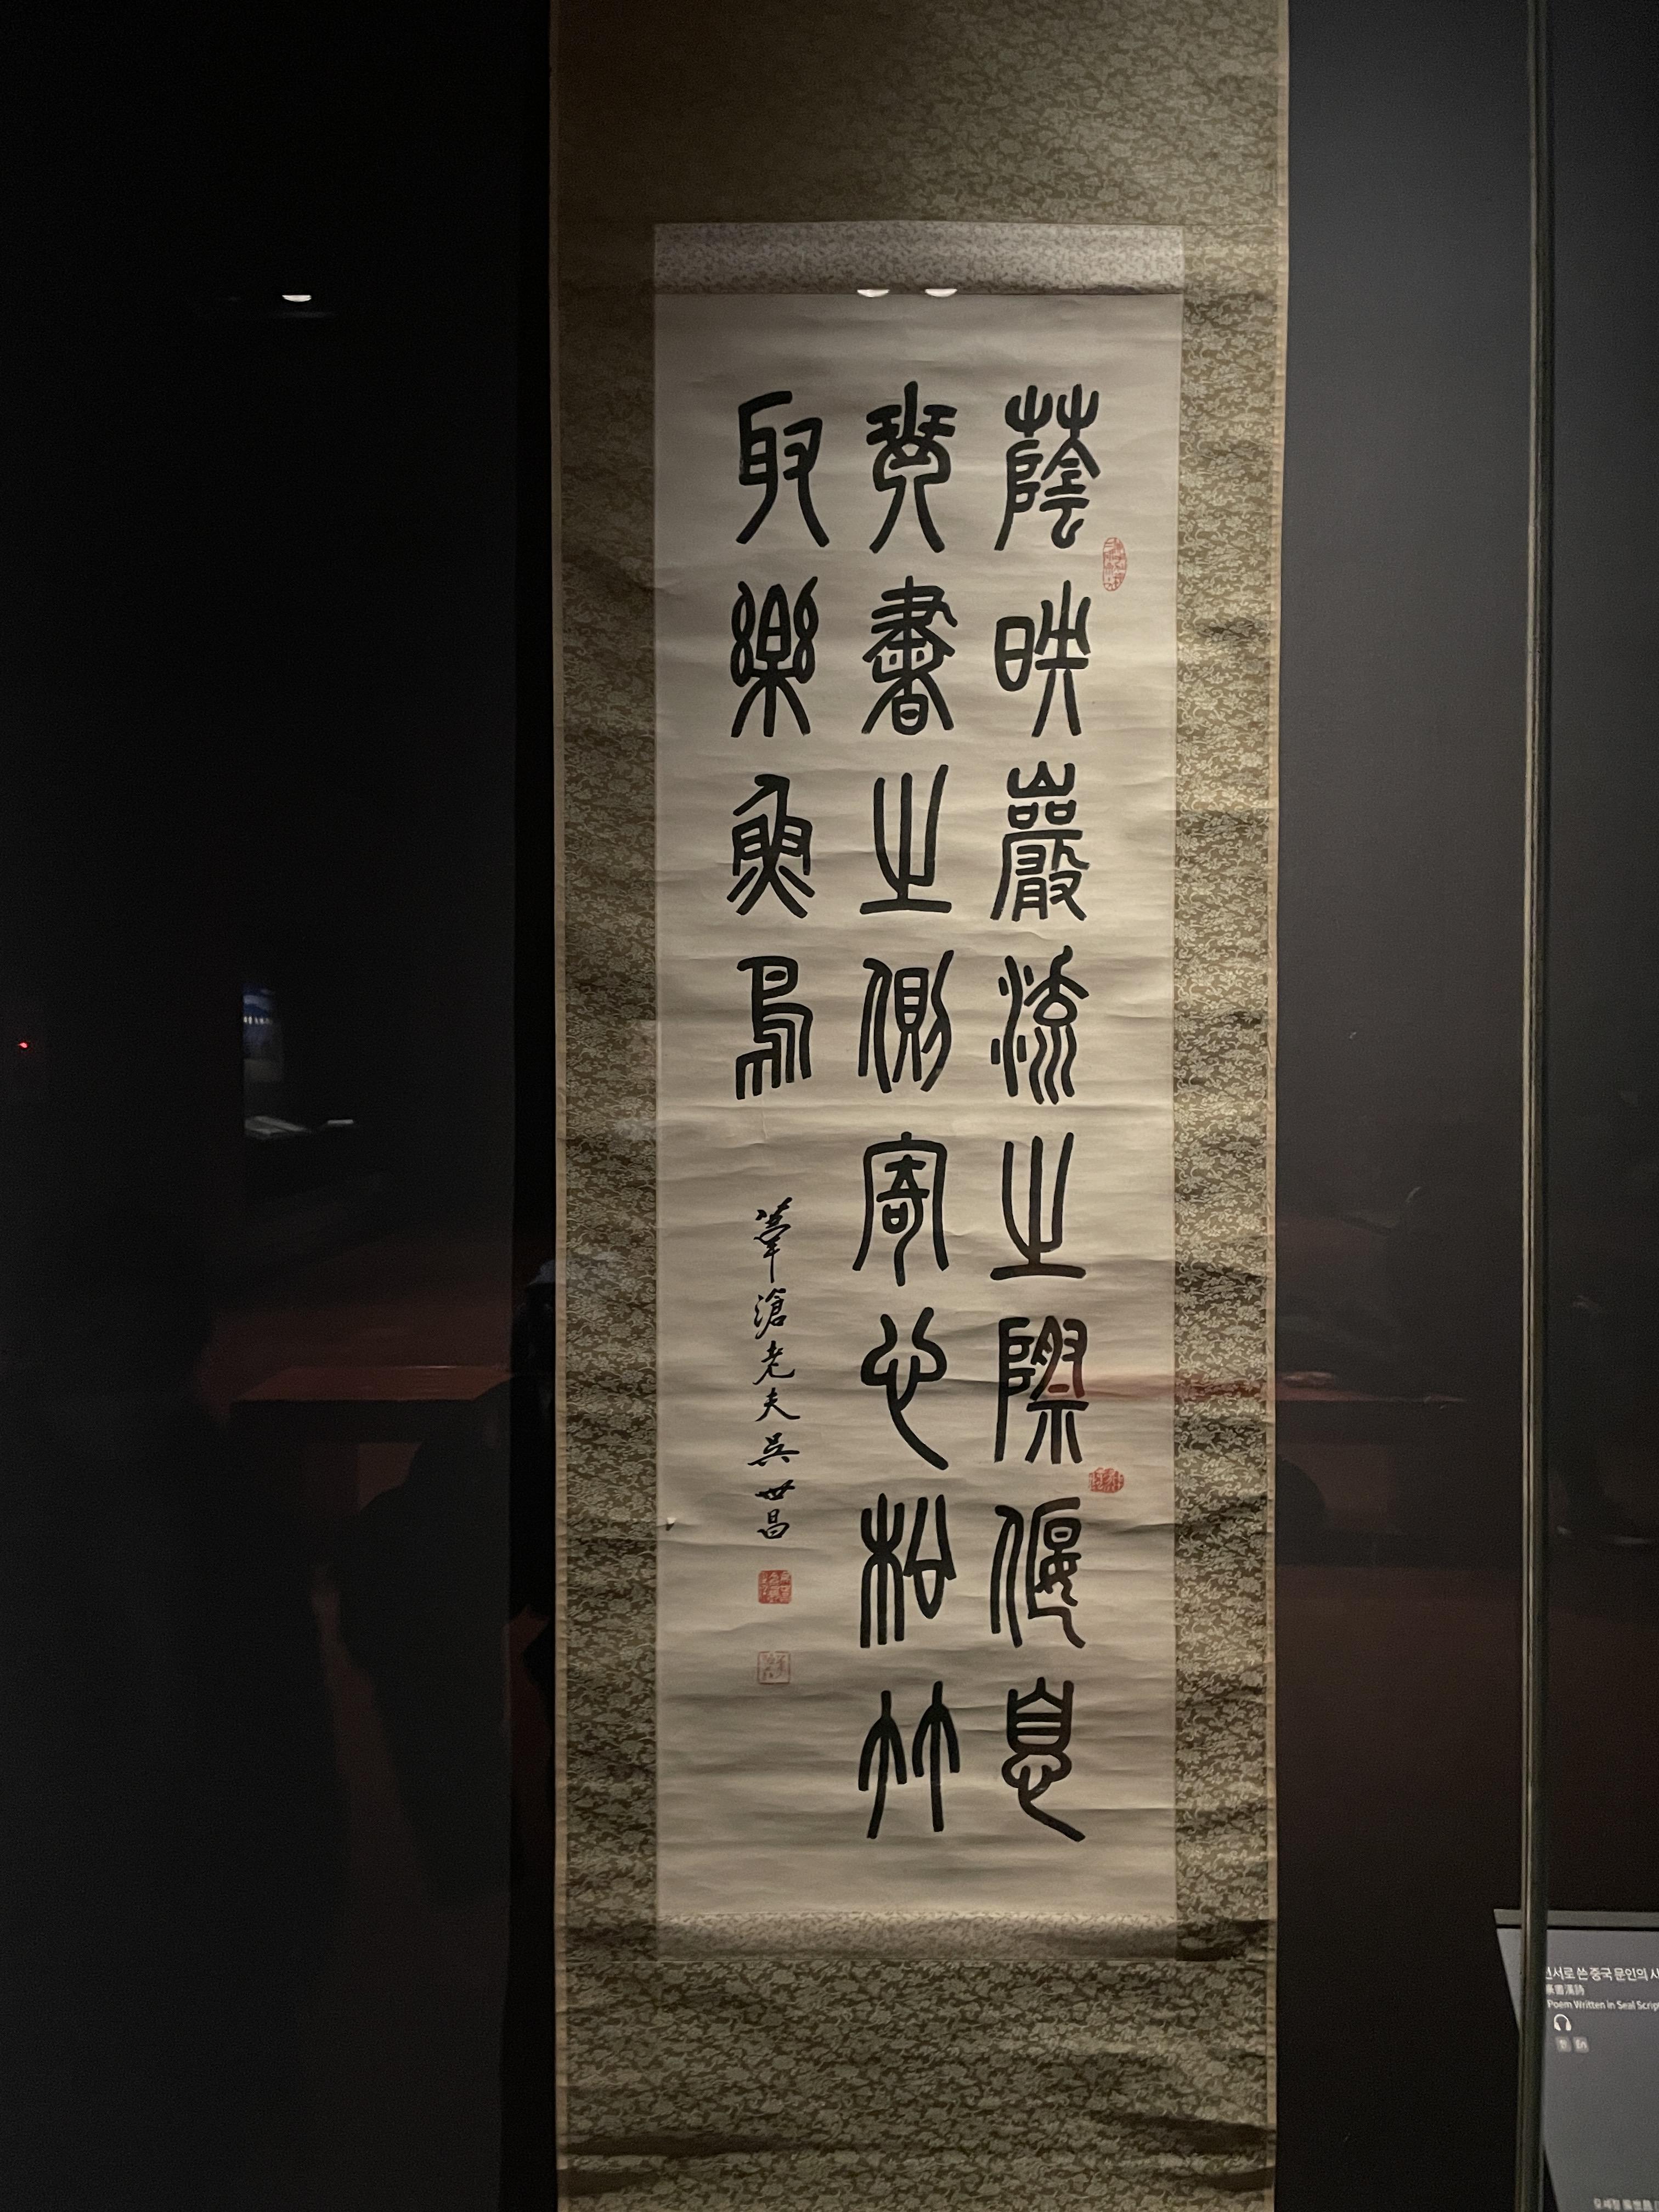 蔭映巖流之際偃息
琴書之側寄心松竹
取樂魚鳥
葦滄老夫吳世昌
서로 쓴 중국 문인의
篆書漢詩
Poem Written in Seal Scrip